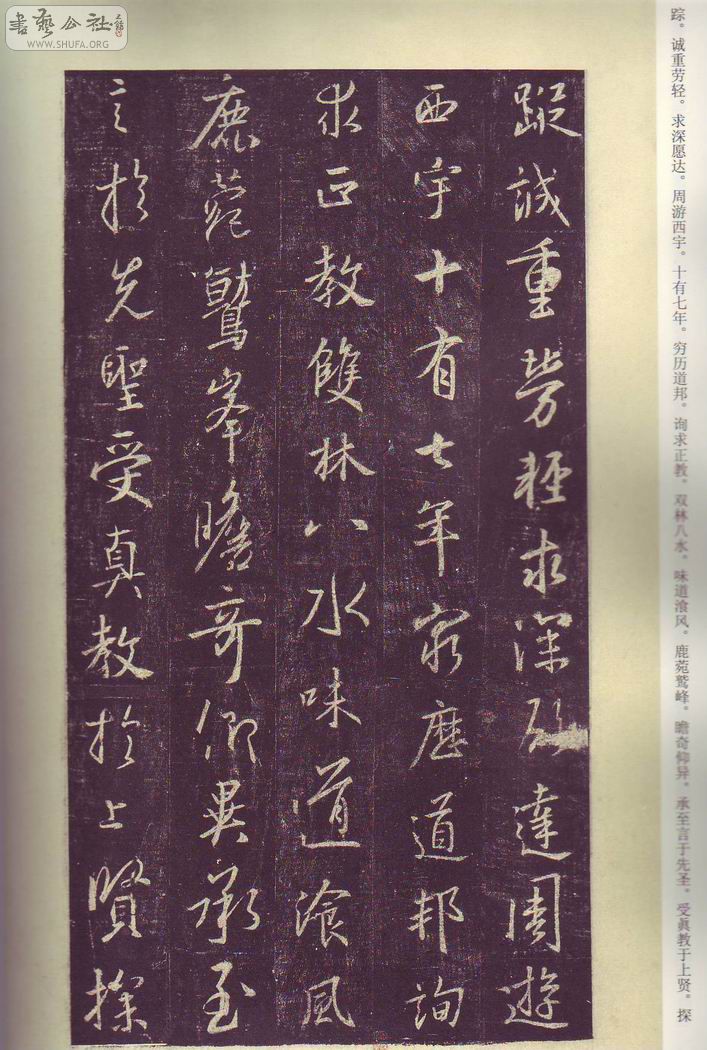 書藝公社
WWW.SHUFA.ORG
踪。诚重劳轻。求深愿达。周游西宇。十有七年。穷历道邦。询求正教。双林八水。味道湌风。鹿菀鹫峰。瞻奇仰异。承至言于先圣。受真教于上贤。探
蹤誠重勞輕求深願達周遊
西宇十有七年窮歷道邦詢
求正教雙林八水味道飡風
鹿菀鷲峯瞻奇仰異承至
言於先聖受真教於上賢探